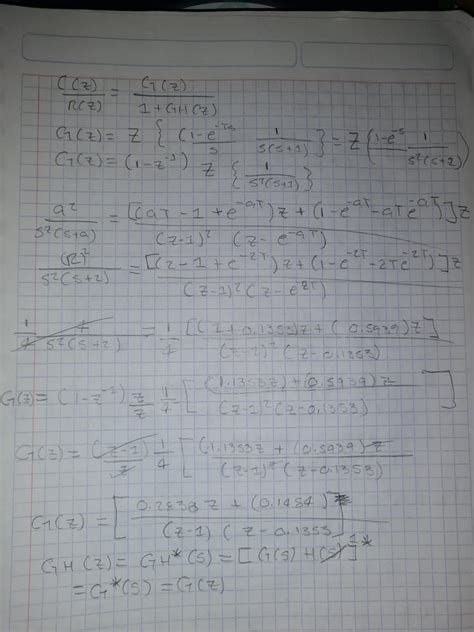 C(z)/R(z) = G(z)/(1+GH(z))
G(z) = Z { (1-e^-Ts)/s 1/(s(s+2)) } = Z (1-e^-s 1/(s²(s+2)))
G(z) = (1-z^-1) Z { 1/(s²(s+2)) }
a²/(s²(s+a)) = [(aT-1+e^-aT)z + (1-e^-aT-aTe^-aT)]z / ((z-1)² (z-e^-aT))
(2)²/(s²(s+2)) = [(2-1+e^-2T)z + (1-e^-2T-2Te^-2T)]z / ((z-1)²(z-e^-2T))
1/4 4/(s²(s+2)) = 1/4 [(1+0.1353)z + (0.5939)z] / ((z-1)²(z-0.1353))
G(z) = (1-z^-1) z/z 1/4 [ (1.1353z)+(0.5939)z / ((z-1)²(z-0.1353)) ]
G(z) = (z-1)/z 1/4 [ (1.1353z + (0.5939)z / ((z-1)²(z-0.1353)) ]
G(z) = [ 0.2838z + (0.1484) / ((z-1)(z-0.1353)) ]
GH(z) = GH*(s) = [G(s)H(s)]^1*
= G*(s) = G(z)